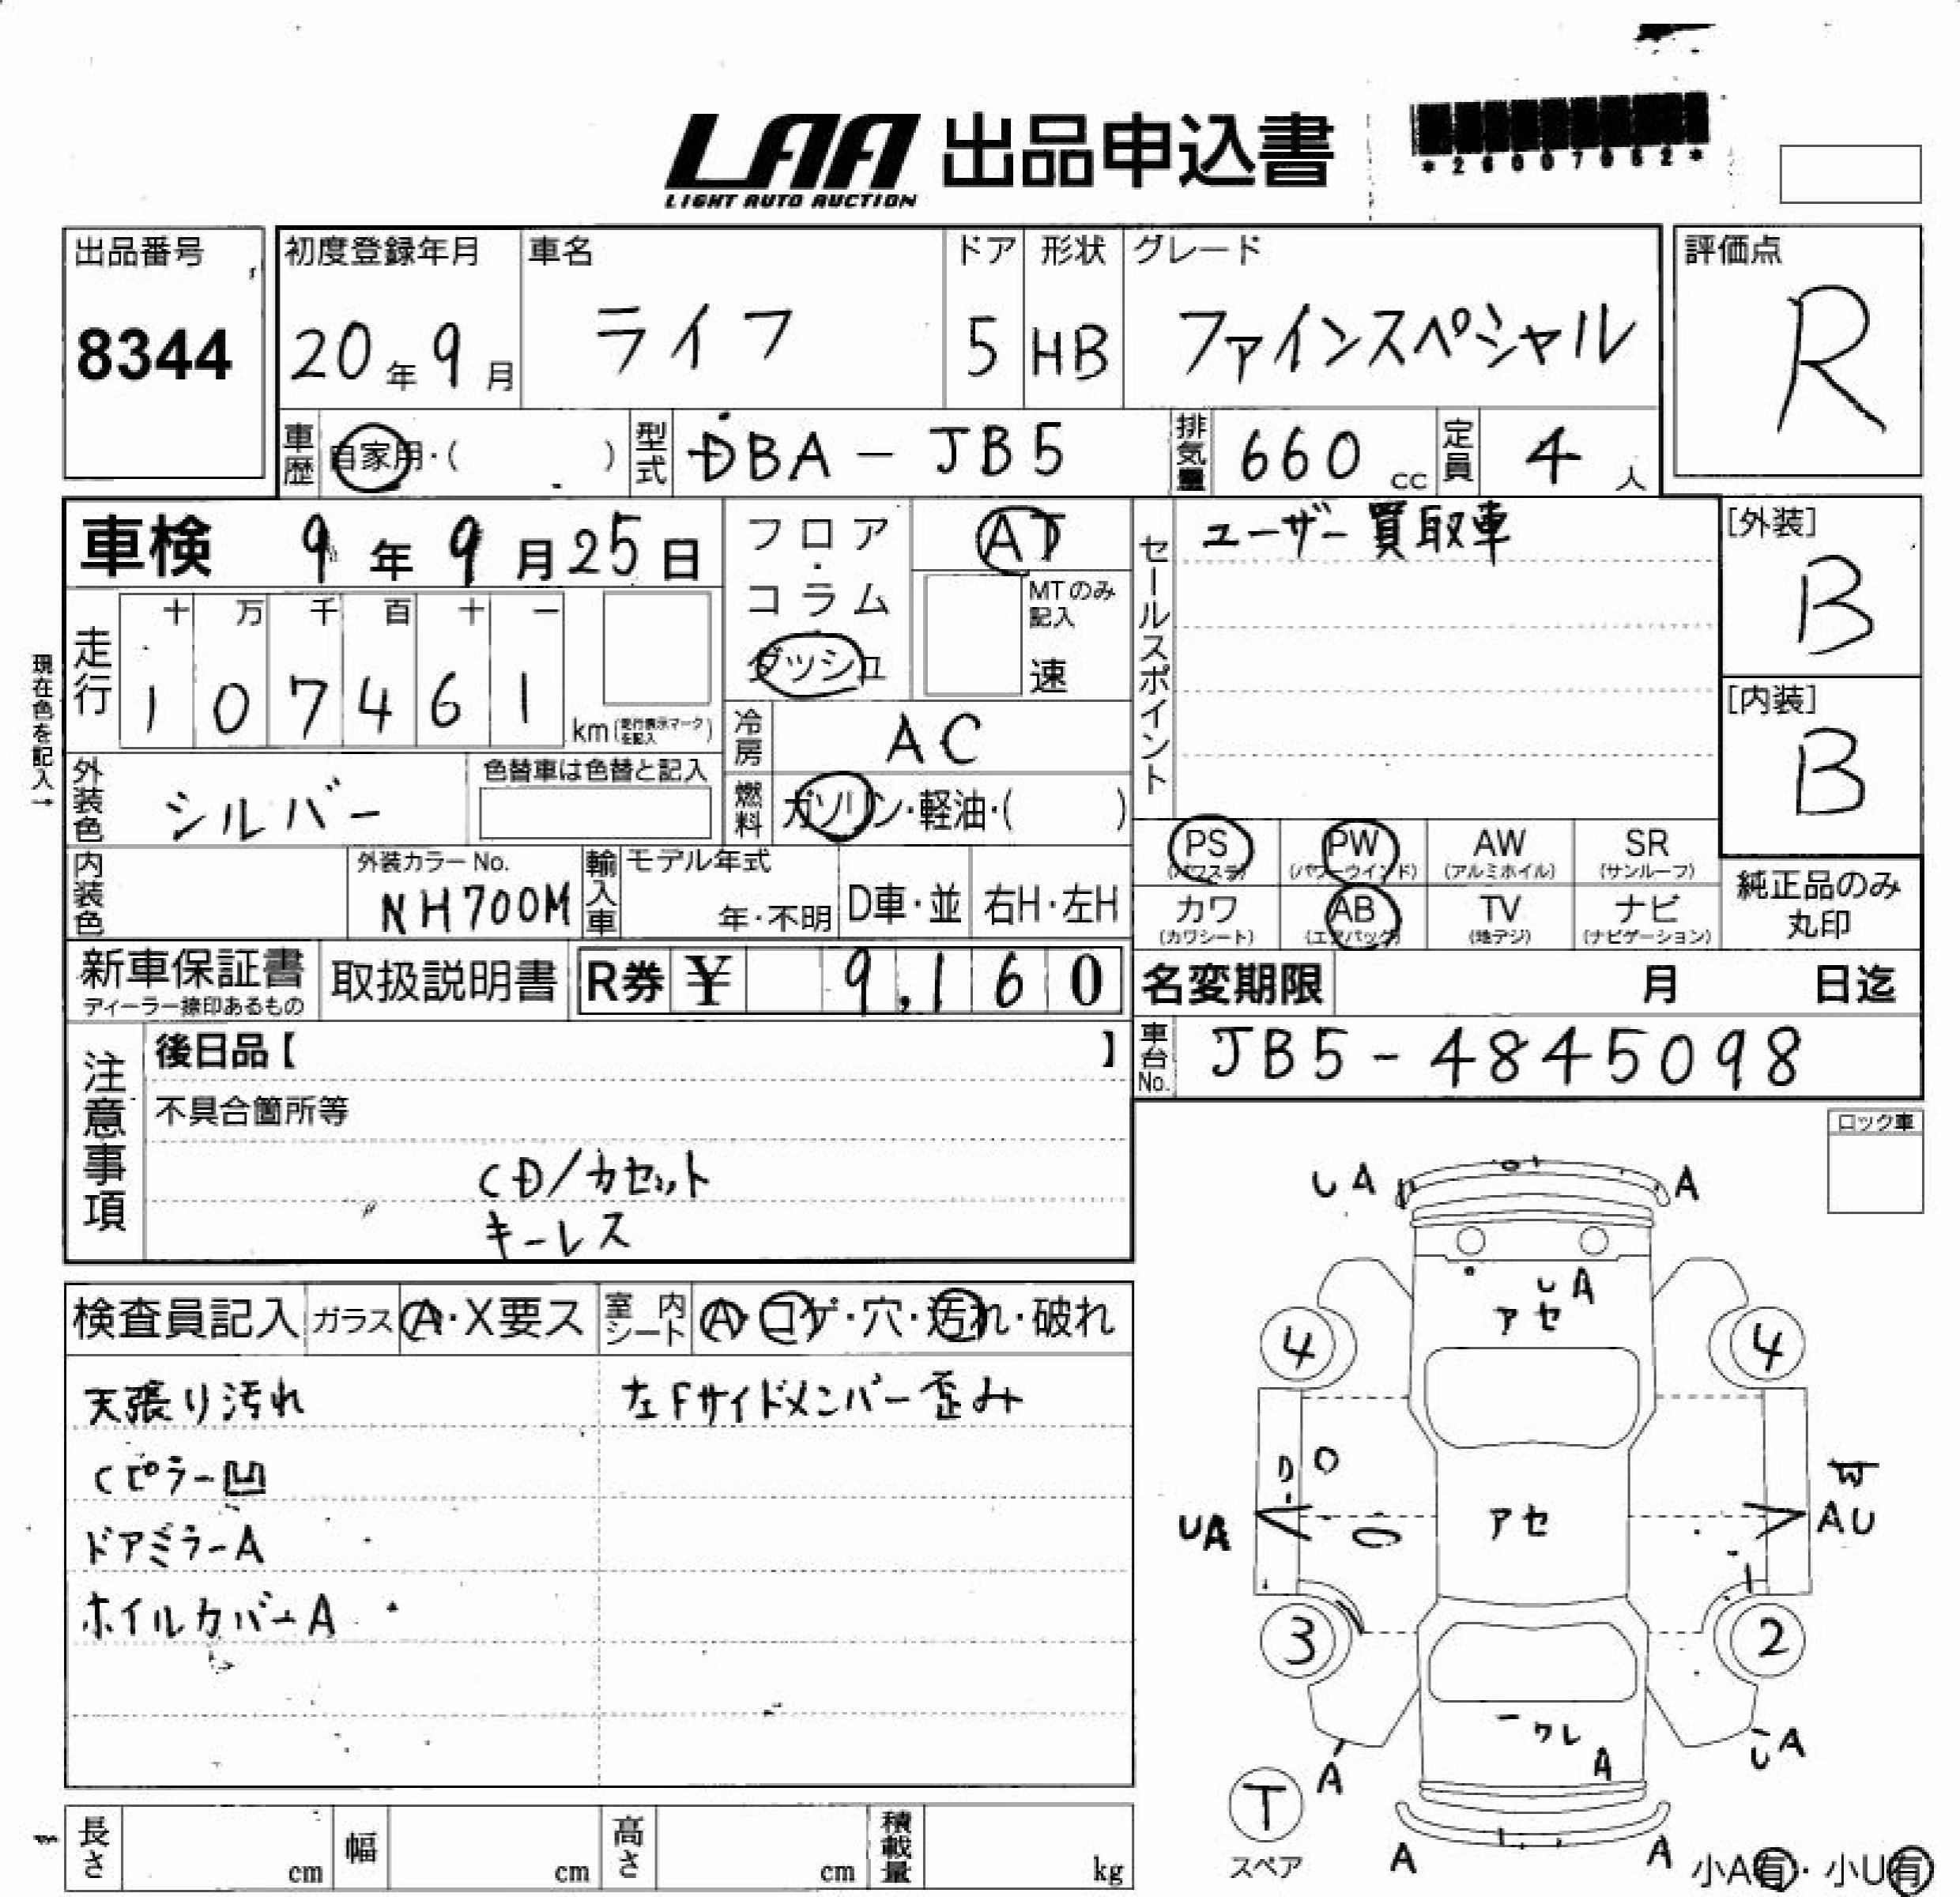 LAA 出品申込書
LIGHT AUTO AUCTION
*26007052*
出品番号
8344
初度登録年月
20年9月
車名
ライフ
ドア
5
形状
HB
グレード
ファインスペシャル
評価点
R
車歴 自家用・( )
型式 DBA-JB5
排気量 660 cc
定員 4 人
車検 9年9月25日
フロア・コラム
ダッシュ
AT
MTのみ記入
速
セールスポイント
ユーザー買取車
[外装]
B
[内装]
B
現在色を記入→
走行
十 万 千 百 十 一
1 0 7 4 6 1 km(走行表示マークを記入)
冷房 AC
燃料 ガソリン・軽油・( )
外装色 シルバー
色替車は色替と記入
内装色
外装カラーNo.
NH700M
輸入車
モデル年式
年・不明
D車・並
右H・左H
PS (パワステ)
PW (パワーウインド)
AW (アルミホイル)
SR (サンルーフ)
カワ (カワシート)
AB (エアバッグ)
TV (地デジ)
ナビ (ナビゲーション)
純正品のみ丸印
新車保証書
ディーラー捺印あるもの
取扱説明書
R券 ¥ 9,160
名変期限 月 日迄
車台No. JB5-4845098
注意事項
後日品【 】
不具合箇所等
CD/カセット
キーレス
ロック車
検査員記入
ガラス A・X要ス
室内シート A・コゲ・穴・汚れ・破れ
天張り汚れ
左Fサイドメンバー歪み
Cピラー凹
ドアミラーA
ホイルカバーA
UA A
UA
アセ
4 4
アセ
UA AU
3 2
クレ
A
A UA
T
スペア
A A
小A有・小U有
長さ cm
幅 cm
高さ cm
積載量 kg